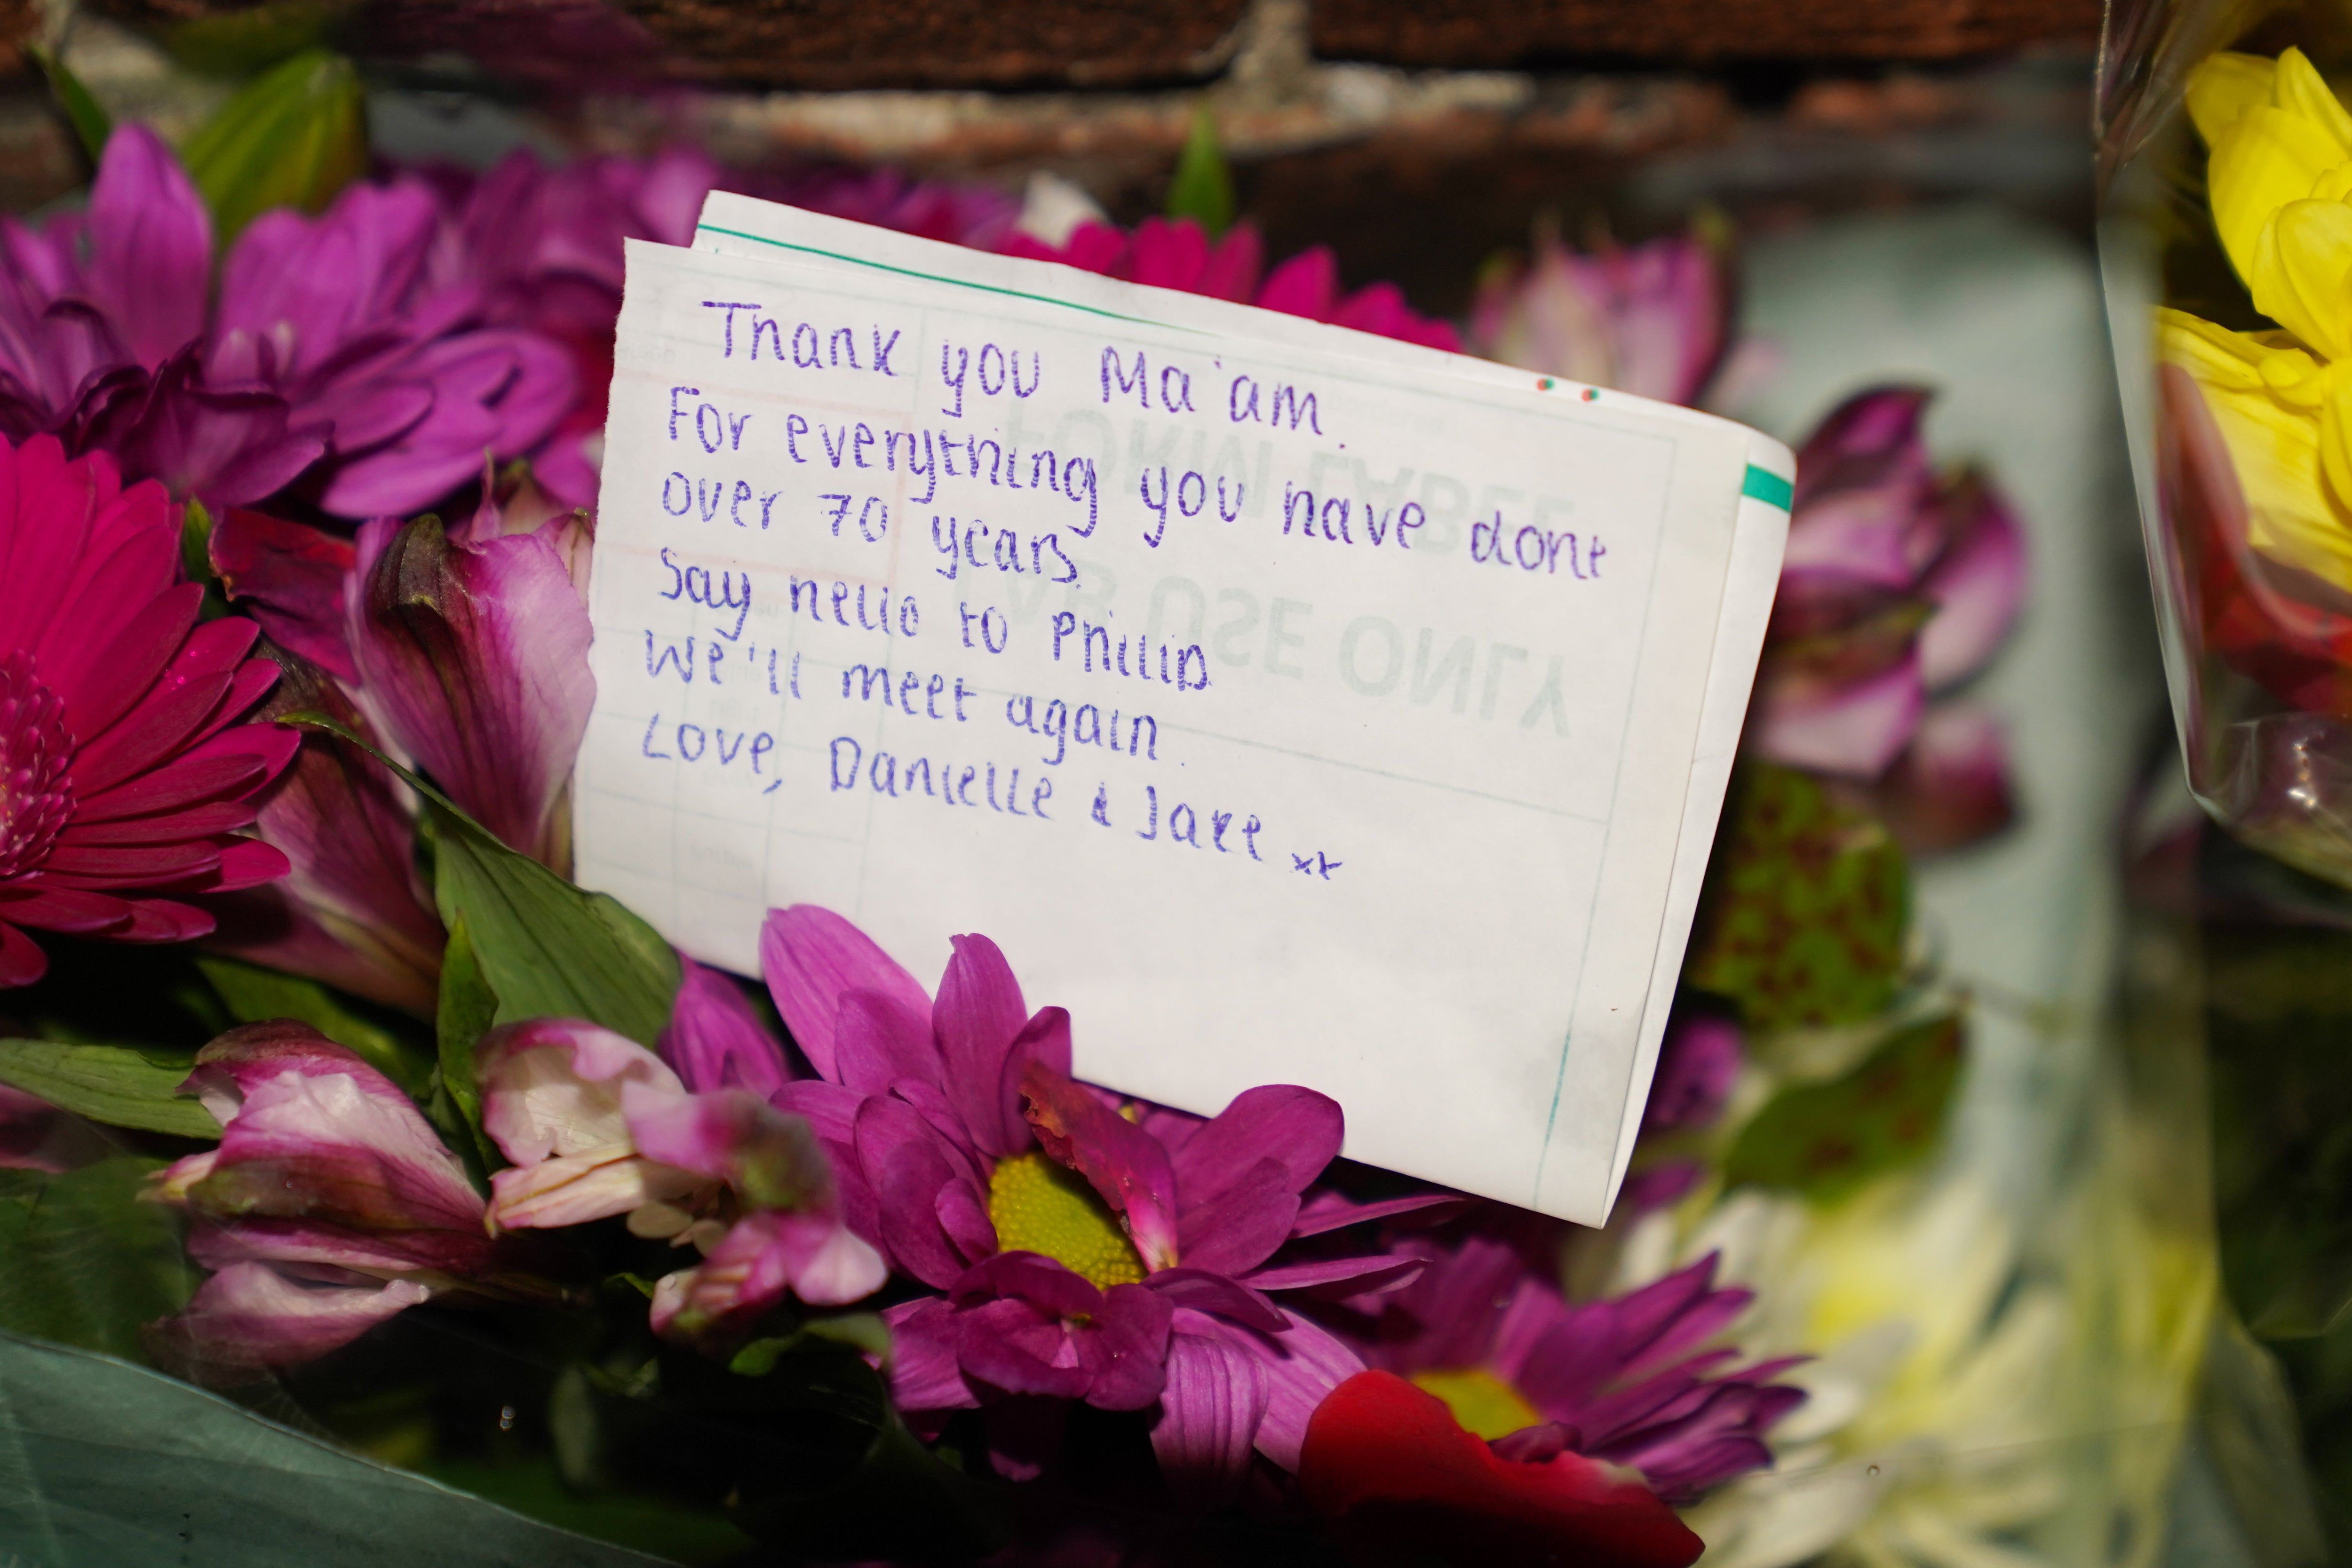 Thank you Ma'am.
For everything you have done
over 70 years.
Say hello to Philip
We'll meet again.
Love, Danielle & Jake xx
FORM LABEL
LAB USE ONLY